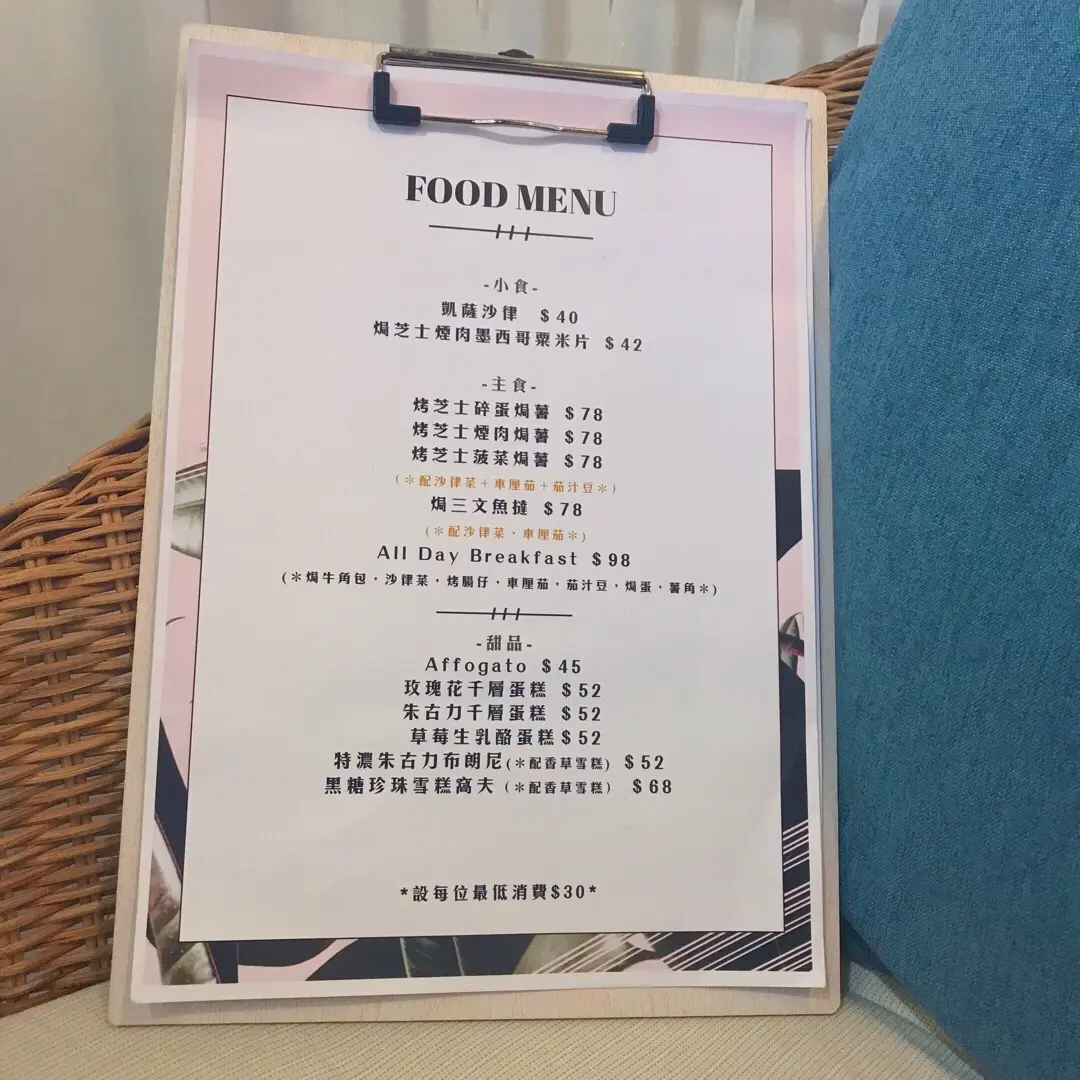 FOOD MENU
-小食-
凱薩沙律 $40
焗芝士煙肉墨西哥粟米片 $42
-主食-
烤芝士碎蛋焗薯 $78
烤芝士煙肉焗薯 $78
烤芝士菠菜焗薯 $78
(＊配沙律菜＋車厘茄＋茄汁豆＊)
焗三文魚撻 $78
(＊配沙律菜・車厘茄＊)
All Day Breakfast $98
(＊焗牛角包・沙律菜・烤腸仔・車厘茄・茄汁豆・焗蛋・薯角＊)
-甜品-
Affogato $45
玫瑰花千層蛋糕 $52
朱古力千層蛋糕 $52
草莓生乳酪蛋糕$52
特濃朱古力布朗尼(＊配香草雪糕) $52
黑糖珍珠雪糕窩夫 (＊配香草雪糕) $68
*設每位最低消費$30*